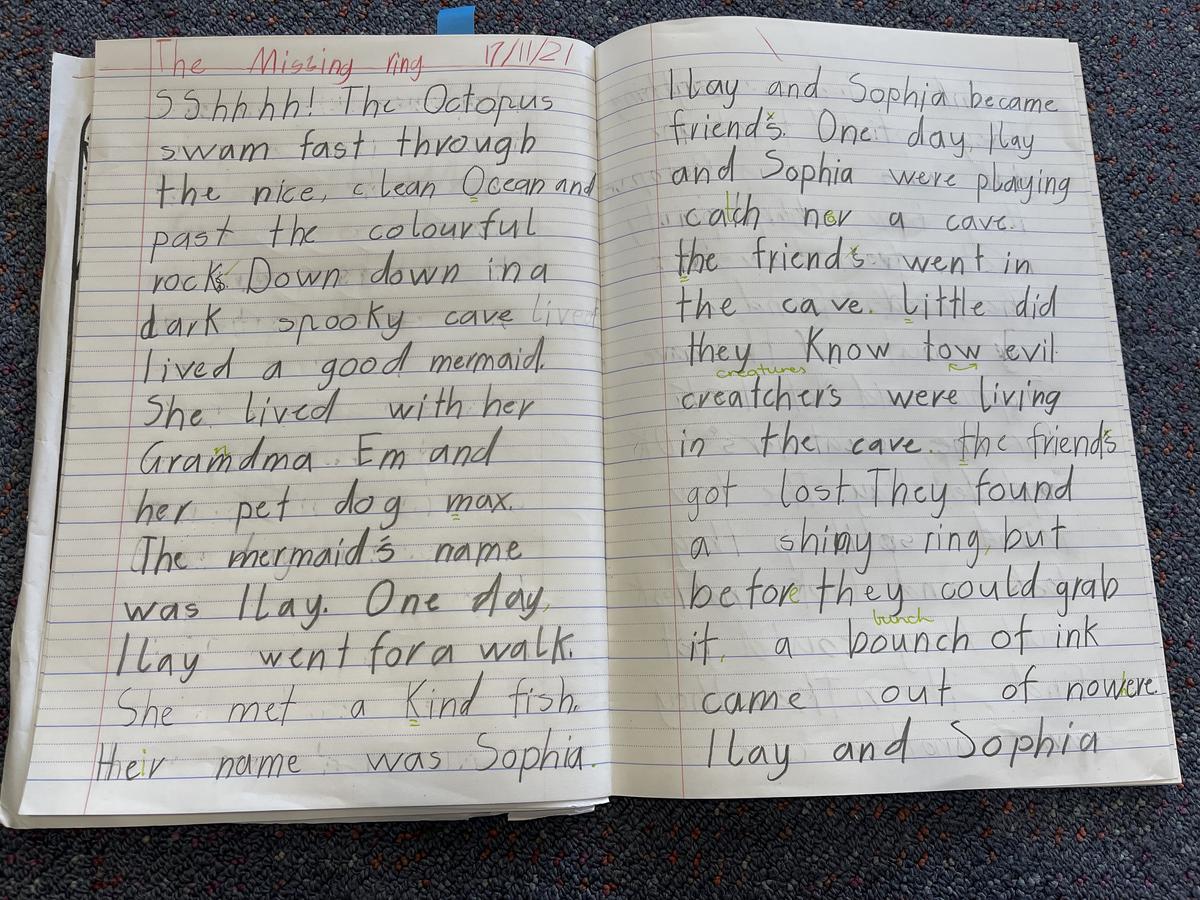 The Missing ring 17/11/21
SShhhh! The Octopus
swam fast through
the nice, clean Ocean and
past the colourful
rock's Down down in a
dark spooky cave livet
lived a good mermaid.
She lived with her
Gramdma Em and
her pet dog max.
The mermaid's name
was Ilay. One day,
Ilay went for a walk.
She met a Kind fish.
Their name was Sophia.
Ilay and Sophia became
friend's. One day, Ilay
and Sophia were playing
catch ner a cave.
the friend's went in
the cave. Little did
they Know tow evil
creatures
creatchers were living
in the cave. the friend's
got lost They found
a shiny ring, but
before they could grab
bunch
it, a bounch of ink
came out of nowere.
Ilay and Sophia